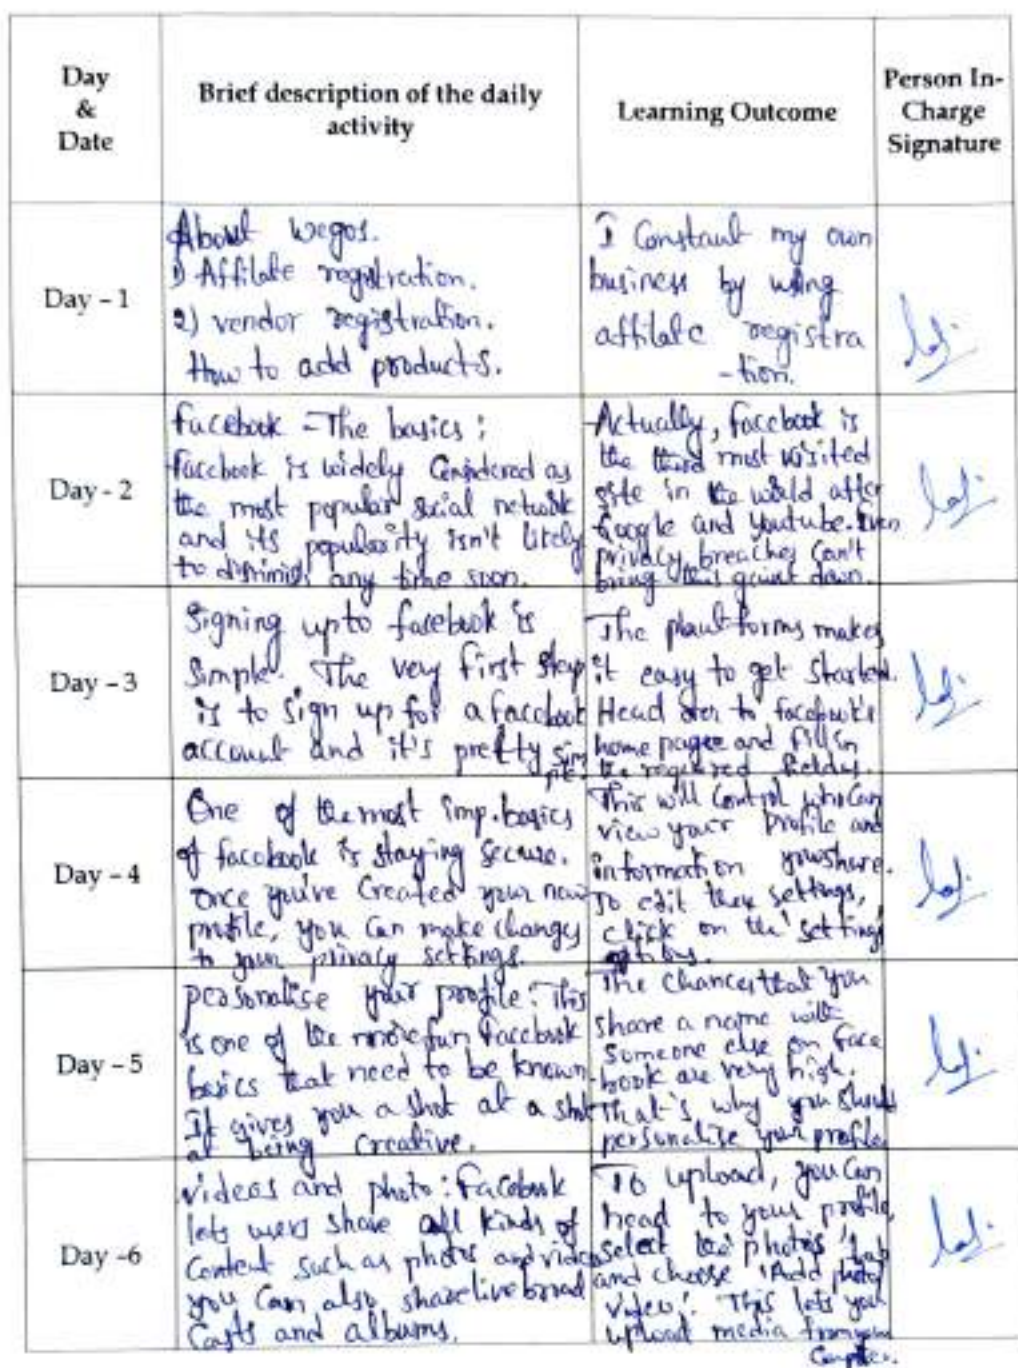 Day
&
Date
Brief description of the daily
activity
Learning Outcome
Person In-
Charge
Signature
Day - 1
About wegos.
1) Affilate registration.
2) vendor registration.
How to add products.
I Constaut my own
business by using
affilate registra
-tion.
Day - 2
facebook - The basics :
facebook is widely Considered as
the most popular social network
and its popularity isn't likely
to diminish any time soon.
Actually, facebook is
the third most visited
site in the world after
Google and Youtube. Even
privacy breaches Can't
bring this gaint down.
Day - 3
Signing upto facebook is
Simple. The very first step
is to sign up for a facebook
account and it's pretty sim
ple.
The plautforms makes
it easy to get started.
Head over to facebook's
home pagee and fill in
the required fields.
Day - 4
One of the most imp. basics
of facebook is staying secure.
once you've Created your new
profile, you Can make changes
to your privacy settings.
This will Control who Can
view your Profile and
information you share.
To edit these settings,
click on the 'setting'
Day - 5
personalise your profile : This
is one of the more fun facebook
basics that need to be known.
It gives you a shot at a shot
at being Creative.
The Chances that you
share a name with
Someone else on Face
book are very high.
That's why you should
personalise your profile
Day -6
videos and photo : facebook
lets users share all kinds of
Content such as photos and video
you Can also share live broad
Casts and albums.
To upload, you Can
head to your profile,
select the 'photos' tab
and choose 'Add photo/
video'. This lets you
upload media from your
Computer.